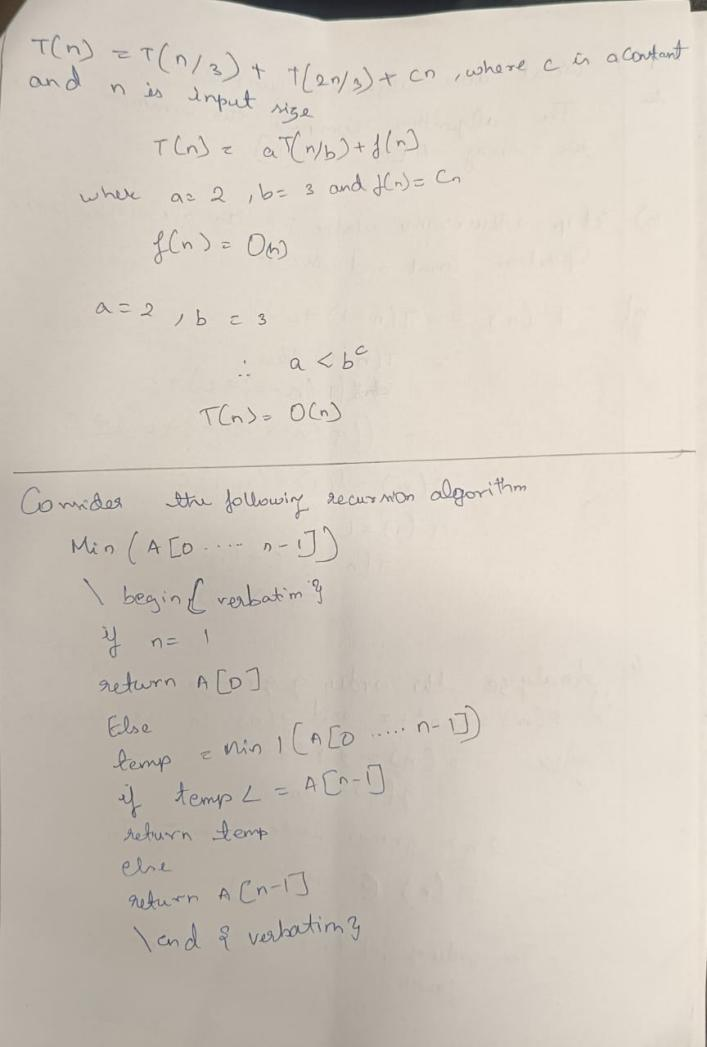 T(n) = T(n/3) + T(2n/3) + cn, where c is a contant
and n is input size
T(n) = aT(n/b) + f(n)
where a= 2, b= 3 and f(n)= Cn
f(n) = O(n)
a = 2, b = 3
∴ a < b^c
T(n) = O(n)
Consider the following recursion algorithm
Min (A[0 ..... n-1])
\ begin{ verbatim }
if n= 1
return A[0]
Else
temp = Min 1 (A[0 ..... n-1])
if temp < = A[n-1]
return temp
else
return A[n-1]
\ end { verbatim }